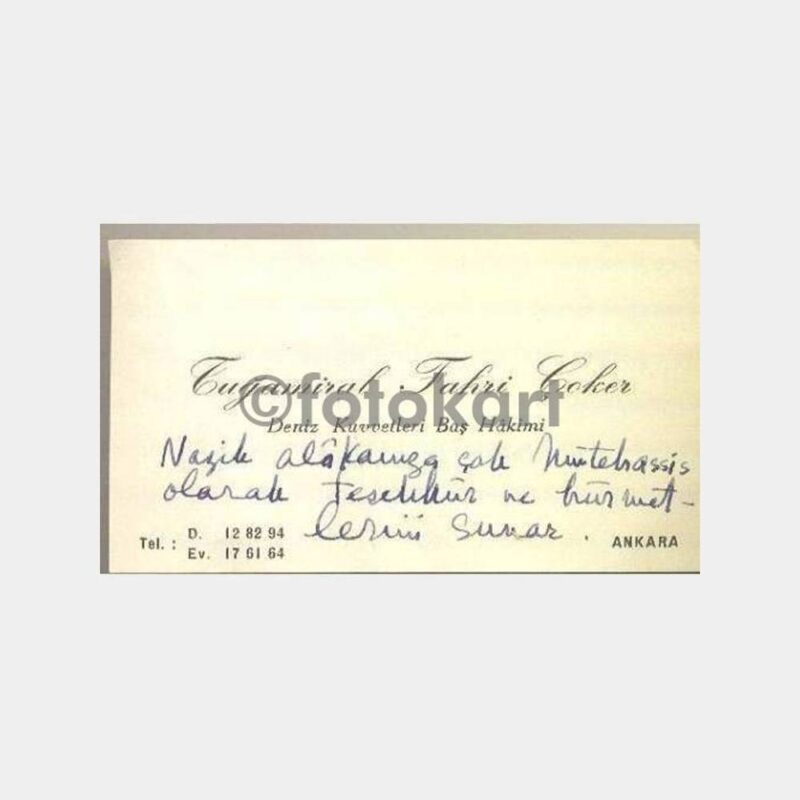 Tuğamiral Fahri Çoker
©fotokart
Deniz Kuvvetleri Baş Hâkimi
Nazik alâkanıza çok mütehassis
olarak teşekkür ve hürmet-
lerini sunar.
Tel.: D. 12 82 94
Ev. 17 61 64
ANKARA